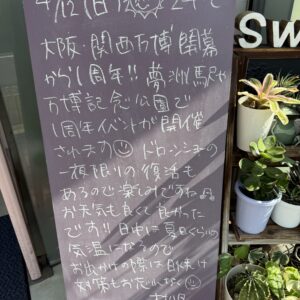 4/12(日) 24℃
大阪・関西万博開幕
から1周年!! 夢洲駅や
万博記念公園で
1周年イベントが開催
されます ドローンショーの
一夜限りの復活も
あるので楽しみですね♫
お天気も良くて良かった
です!! 日中は夏日くらいの
気温になるので
お出かけの際は日焼け
対策もお忘れなく
SW